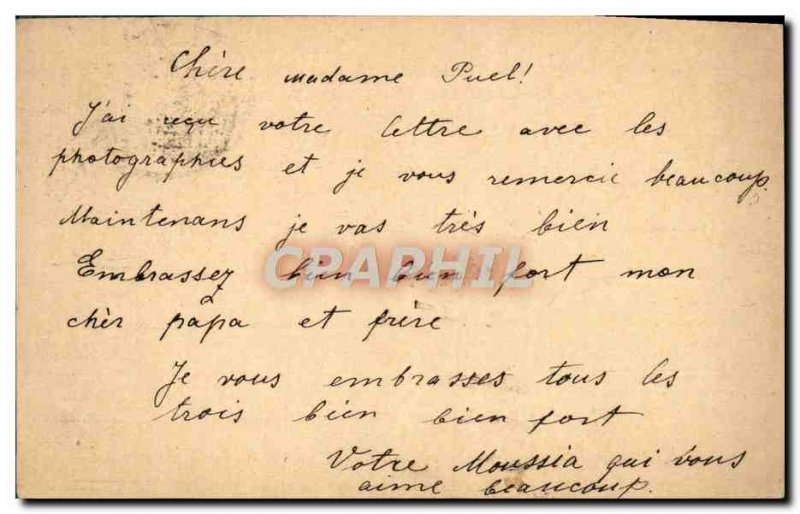 Chère madame Puel!
J'ai reçu votre lettre avec les
photographies et je vous remercie beaucoup.
Maintenans je vas très bien
Embrassez bien bien fort mon
CRAPHIL
chèr papa et frère
Je vous embrasses tous les
trois bien bien fort
Votre Moussia qui vous
aime beaucoup.